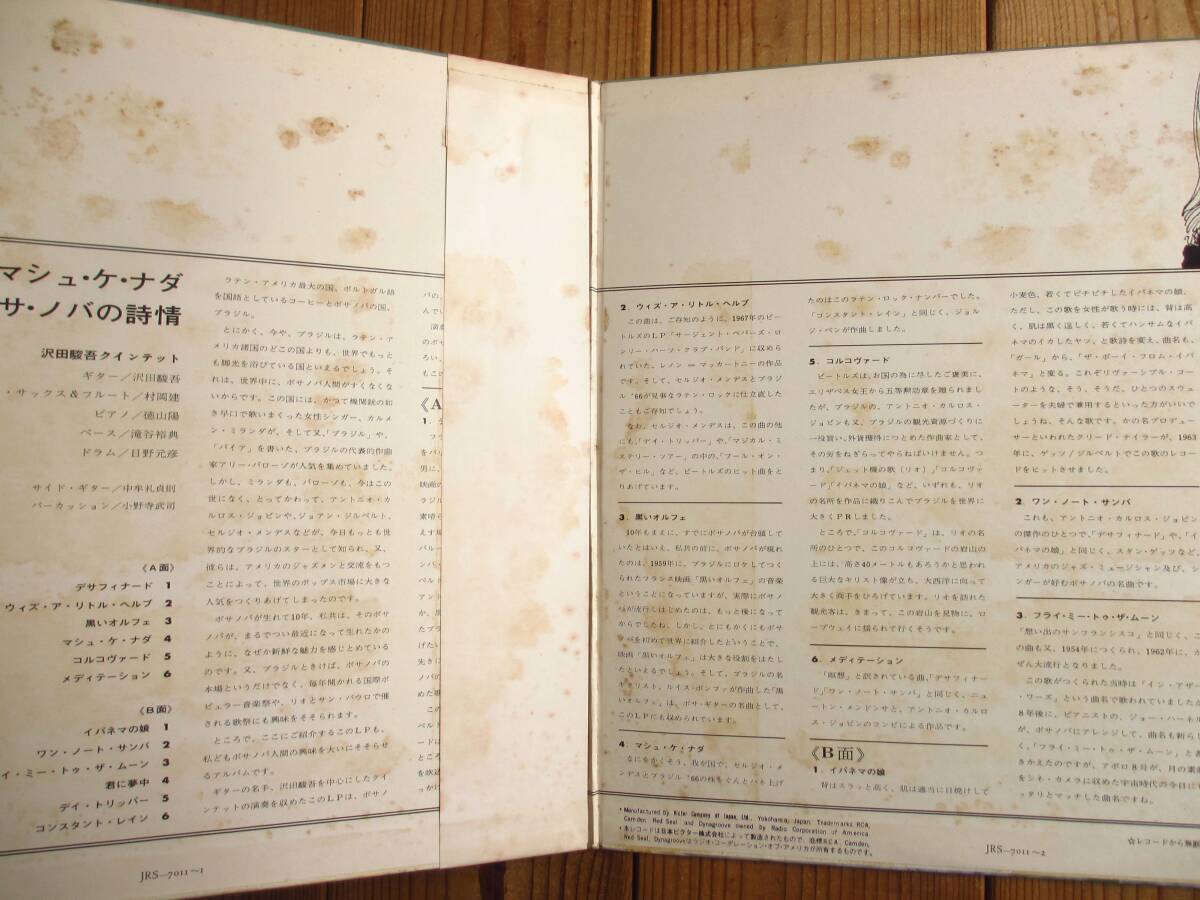 マシュ・ケ・ナダ
サ・ノバの詩情
沢田駿吾クインテット
ギター／沢田駿吾
・サックス&フルート／村岡建
ピアノ／徳山陽
ベース／滝谷裕典
ドラム／日野元彦
サイド・ギター／中牟礼貞則
パーカッション／小野寺武司
《A面》
デサフィナード 1
ウィズ・ア・リトル・ヘルプ 2
黒いオルフェ 3
マシュ・ケ・ナダ 4
コルコヴァード 5
メディテーション 6
《B面》
イパネマの娘 1
ワン・ノート・サンバ 2
イ・ミー・トゥ・ザ・ムーン 3
君に夢中 4
デイ・トリッパー 5
コンスタント・レイン 6
JRS—7011〜1
ラテン・アメリカ最大の国、ポルトガル語
を国語としているコーヒーとボサノバの国、
ブラジル。
とにかく、今や、ブラジルは、ラテン・ア
メリカ諸国のどこの国よりも、世界でもっと
も脚光を浴びている国といえるでしょう。そ
れは、世界中に、ボサノバ人間がすくなくな
いからです。この国には、かつて機関銃の如
き早口で歌いまくった女性シンガー、カルメ
ン・ミランダが、そして又、「ブラジル」や、
「バイア」を書いた、ブラジルの代表的作曲
家アリー・バローゾが人気を集めていました。
しかし、ミランダも、バローゾも、今はこの
世になく、とってかわって、アントニオ・カ
ルロス・ジョビンや、ジョアン・ジルベルト、
セルジオ・メンデスなどが、今日もっとも世
界的なブラジルのスターとして知られ、又、
彼らは、アメリカのジャズメンと交流をもつ
ことによって、世界のポップス市場に大きな
人気をつくりあげてしまったのです。
ボサノバが生れて10年、私共は、そのボサ
ノバが、まるでつい最近になって生れたかの
ように、なぜか新鮮な魅力を感じとめている
のです。又、ブラジルときけば、ボサノバの
本場というだけでなく、毎年開かれる国際ポ
ピュラー音楽祭や、リオとサン・パウロで催
される歌祭にも興味をそそられます。
ところで、ここにご紹介するこのLPも、
私どもボサノバ人間の興味を大いにそそらせ
るアルバムです。
ギターの名手、沢田駿吾を中心にしたクイ
ンテットの演奏を収めたこのLPは、ボサノ
《A
2．ウィズ・ア・リトル・ヘルプ
この曲は、ご存知のように、1967年のビー
トルズのLP「サージェント・ペパーズ・ロ
ンリー・ハーツ・クラブ・バンド」に収めら
れていた、レノン＝マッカートニーの作品
です。そして、セルジオ・メンデスとブラジ
ル'66が見事なラテン・ロックに仕立直した
こともご存知でしょう。
なお、セルジオ・メンデスは、この曲の他
にも、「デイ・トリッパー」や、「マジカル・ミ
ステリー・ツアー」の中の、「フール・オン・
ザ・ヒル」など、ビートルズのヒット曲をと
りあげています。
3．黒いオルフェ
10年もまえに、すでにボサノバが台頭して
いたとはいえ、私共の前に、ボサノバが現れ
たのは、1959年に、ブラジルにロケしてつく
られたフランス映画「黒いオルフェ」の音楽
ということになっていますが、実際にボサノ
バが流行しはじめたのは、もっと後になって
からでしたね。しかし、とにもかくにもボサ
ノバを初めて世界に紹介したということで、
映画「黒いオルフェ」は大きな役割をはたし
たといえるでしょう。そして、ブラジルの名
ギタリスト、ルイス・ボンファが作曲した「黒
いオルフェ」は、ボサ・ギターの名曲として、
このLPにも収められています。
4．マシュ・ケ・ナダ
なにをかくそう、我が国で、セルジオ・メ
ンデスとブラジル'66の株をぐんとハネ上げ
たのはこのラテン・ロック・ナンバーでした。
「コンスタント・レイン」と同じく、ジョル
ジ・ベンが作曲しました。
5．コルコヴァード
ビートルズは、お国の為に尽したご褒美に、
エリザベス女王から五等勲功章を贈られまし
たが、ブラジルの、アントニオ・カルロス・
ジョビンも又、ブラジルの観光資源づくりに
一役買い、外貨獲得につとめた作曲家として、
その労をねぎらってやらねばいけません。つ
まり、「ジェット機の歌（リオ）」、「コルコヴァ
ード」「イパネマの娘」など、いずれも、リオ
の名所を作品に織りこんでブラジルを世界に
大きくPRしました。
ところで、「コルコヴァード」は、リオの名
所のひとつで、このコルコヴァードの岩山の
上には、高さ40メートルもあろうかと思われ
る巨大なキリスト像が立ち、大西洋に向って
大きく両手をひろげています。リオを訪れた
観光客は、きまって、この岩山を見物に、ロ
ープウェイに揺られて行くそうです。
6．メディテーション
「瞑想」と訳されている曲、「デサフィナー
ド」「ワン・ノート・サンバ」と同じく、ニュ
ートン・メンドンサと、アントニオ・カルロ
ス・ジョビンのコンビによる作品です。
《B面》
1．イパネマの娘
背はスラッと高く、肌は適当に日焼けして
小麦色、若くてピチピチしたイパネマの娘、
ただし、この歌を女性が歌う時には、背は高
く、肌は黒く逞しく、若くてハンサムなイパ
ネマのイカしたヤツ、と歌詩を変え、曲名も、
「ガール」から、「ザ・ボーイ・フロム・イパ
ネマ」と変る。これぞリヴァーシブル・コー
トのような、そう、そうだ、ひとつのスウェ
ーターを夫婦で兼用するといった方がいいで
しょうね、そんな歌です。かの名プロデュー
サーといわれたクリード・テイラーが、1963
年に、ゲッツ／ジルベルトでこの歌のレコー
ドをヒットさせました。
2．ワン・ノート・サンバ
これも、アントニオ・カルロス・ジョビン
の傑作のひとつで、「デサフィナード」や、「イ
パネマの娘」と同じく、スタン・ゲッツなど、
アメリカのジャズ・ミュージシャン及び、シ
ンガーが好むボサノバの名曲です。
3．フライ・ミー・トゥ・ザ・ムーン
「想い出のサンフランシスコ」と同じく、こ
の曲も又、1954年につくられ、1962年に、が
ぜん大流行となりました。
この歌がつくられた当時は「イン・アザー
・ワーズ」という曲名で歌われていましたが
8年後に、ピアニストの、ジョー・ハーネル
が、ボサノバにアレンジして、曲名も新らし
く、「フライ・ミー・トゥ・ザ・ムーン」と
きかえたのですが、アポロ8号が、月の素顔
をシネ・カメラに収めた宇宙時代の今日に
ッタリとマッチした曲名ですね。
• Manufactured by Victor Company of Japan, LTD., Yokohama, Japan. Trademarks RCA,
Camden, Red Seal and Dynagroove owned by Radio Corporation of America.
• 本レコードは日本ビクター株式会社によって製造されたもので、商標RCA, Camden,
Red Seal, Dynagrooveはラジオ・コーポレーション・オブ・アメリカが所有するものです。
JRS—7011〜2
☆レコードから無断